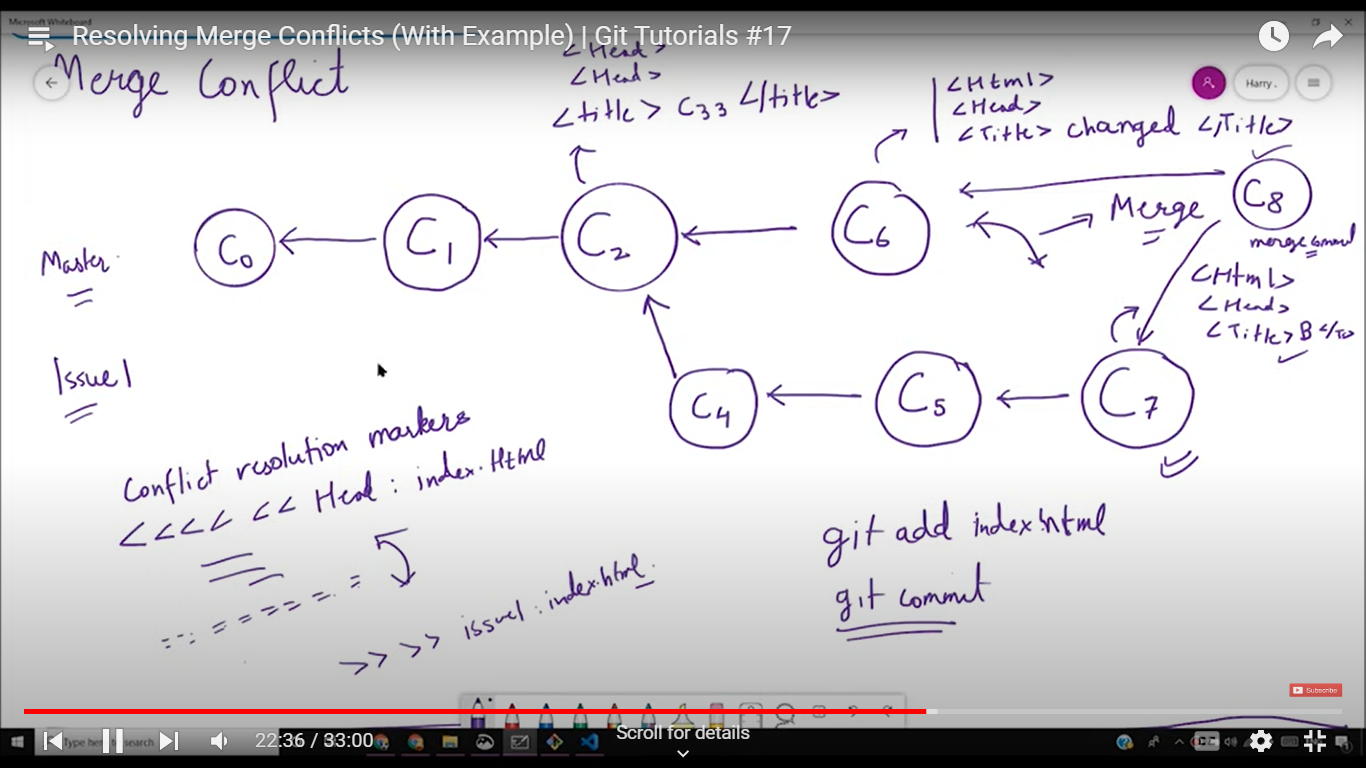 Microsoft Whiteboard
Resolving Merge Conflicts (With Example) | Git Tutorials #17
Merge Conflict
<Head>
<Head>
<title> C33 </title>
Harry .
<Html>
<Head>
<Title> changed </Title>
C0
C1
C2
C6
Merge
C8
merge commit
Master
<Html>
<Head>
<Title> B </T
Issue1
C4
C5
C7
Conflict resolution markers
<<<< << Head : index.Html
== = = = = = =
>> >> issue1 : index.html
git add index.html
git commit
Subscribe
Scroll for details
Type here to search
22:36 / 33:00